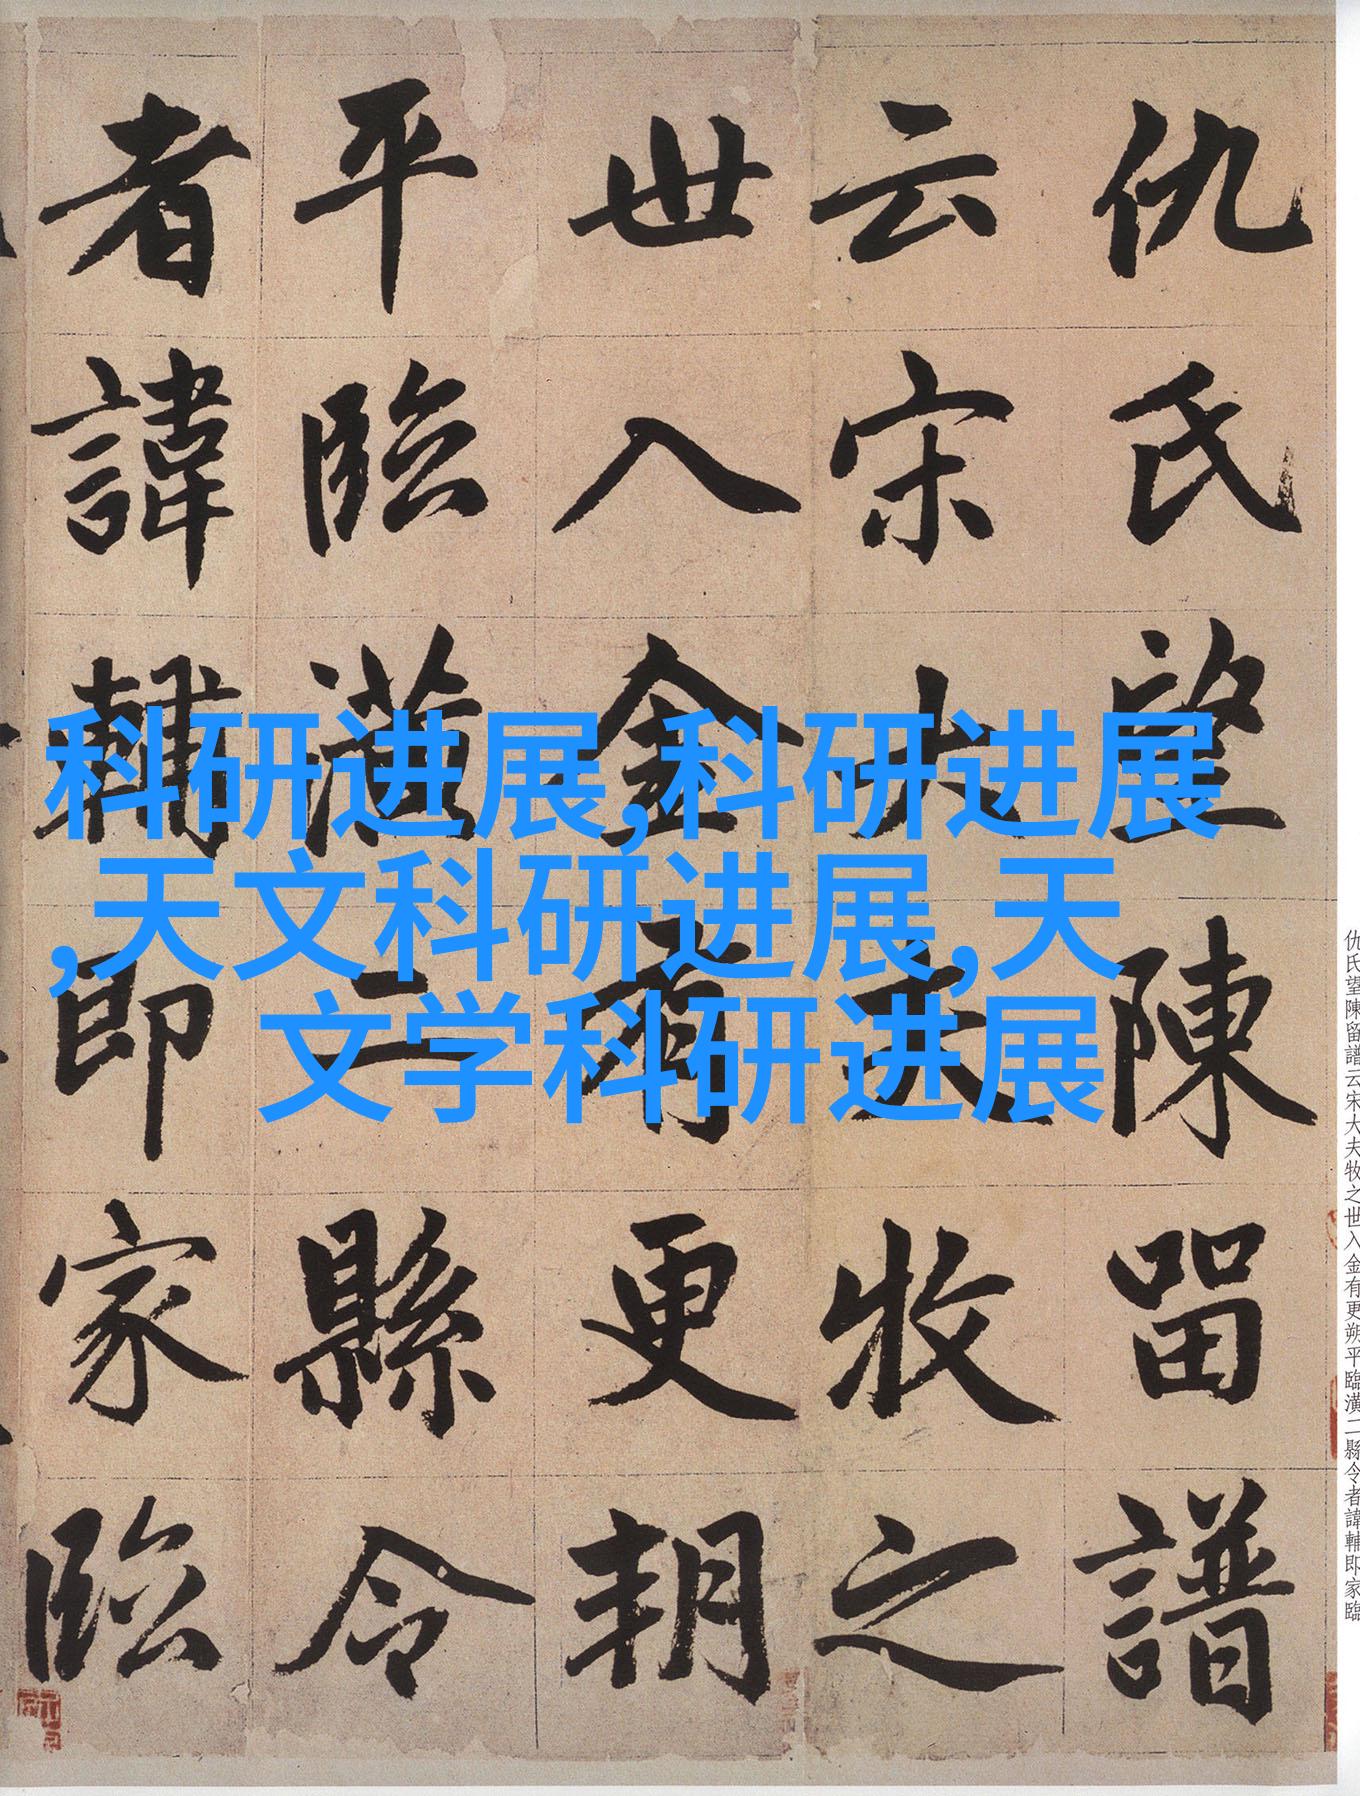 仇氏望陳留譜
云宋大夫牧之
世入金有更朔
平臨潢二縣令
者諱輔即家臨
科研进展,科研进展
,天文科研进展,天
文学科研进展
仇氏望陳留譜云宋大夫牧之世入金有更朔平臨潢二縣令者諱輔即家臨